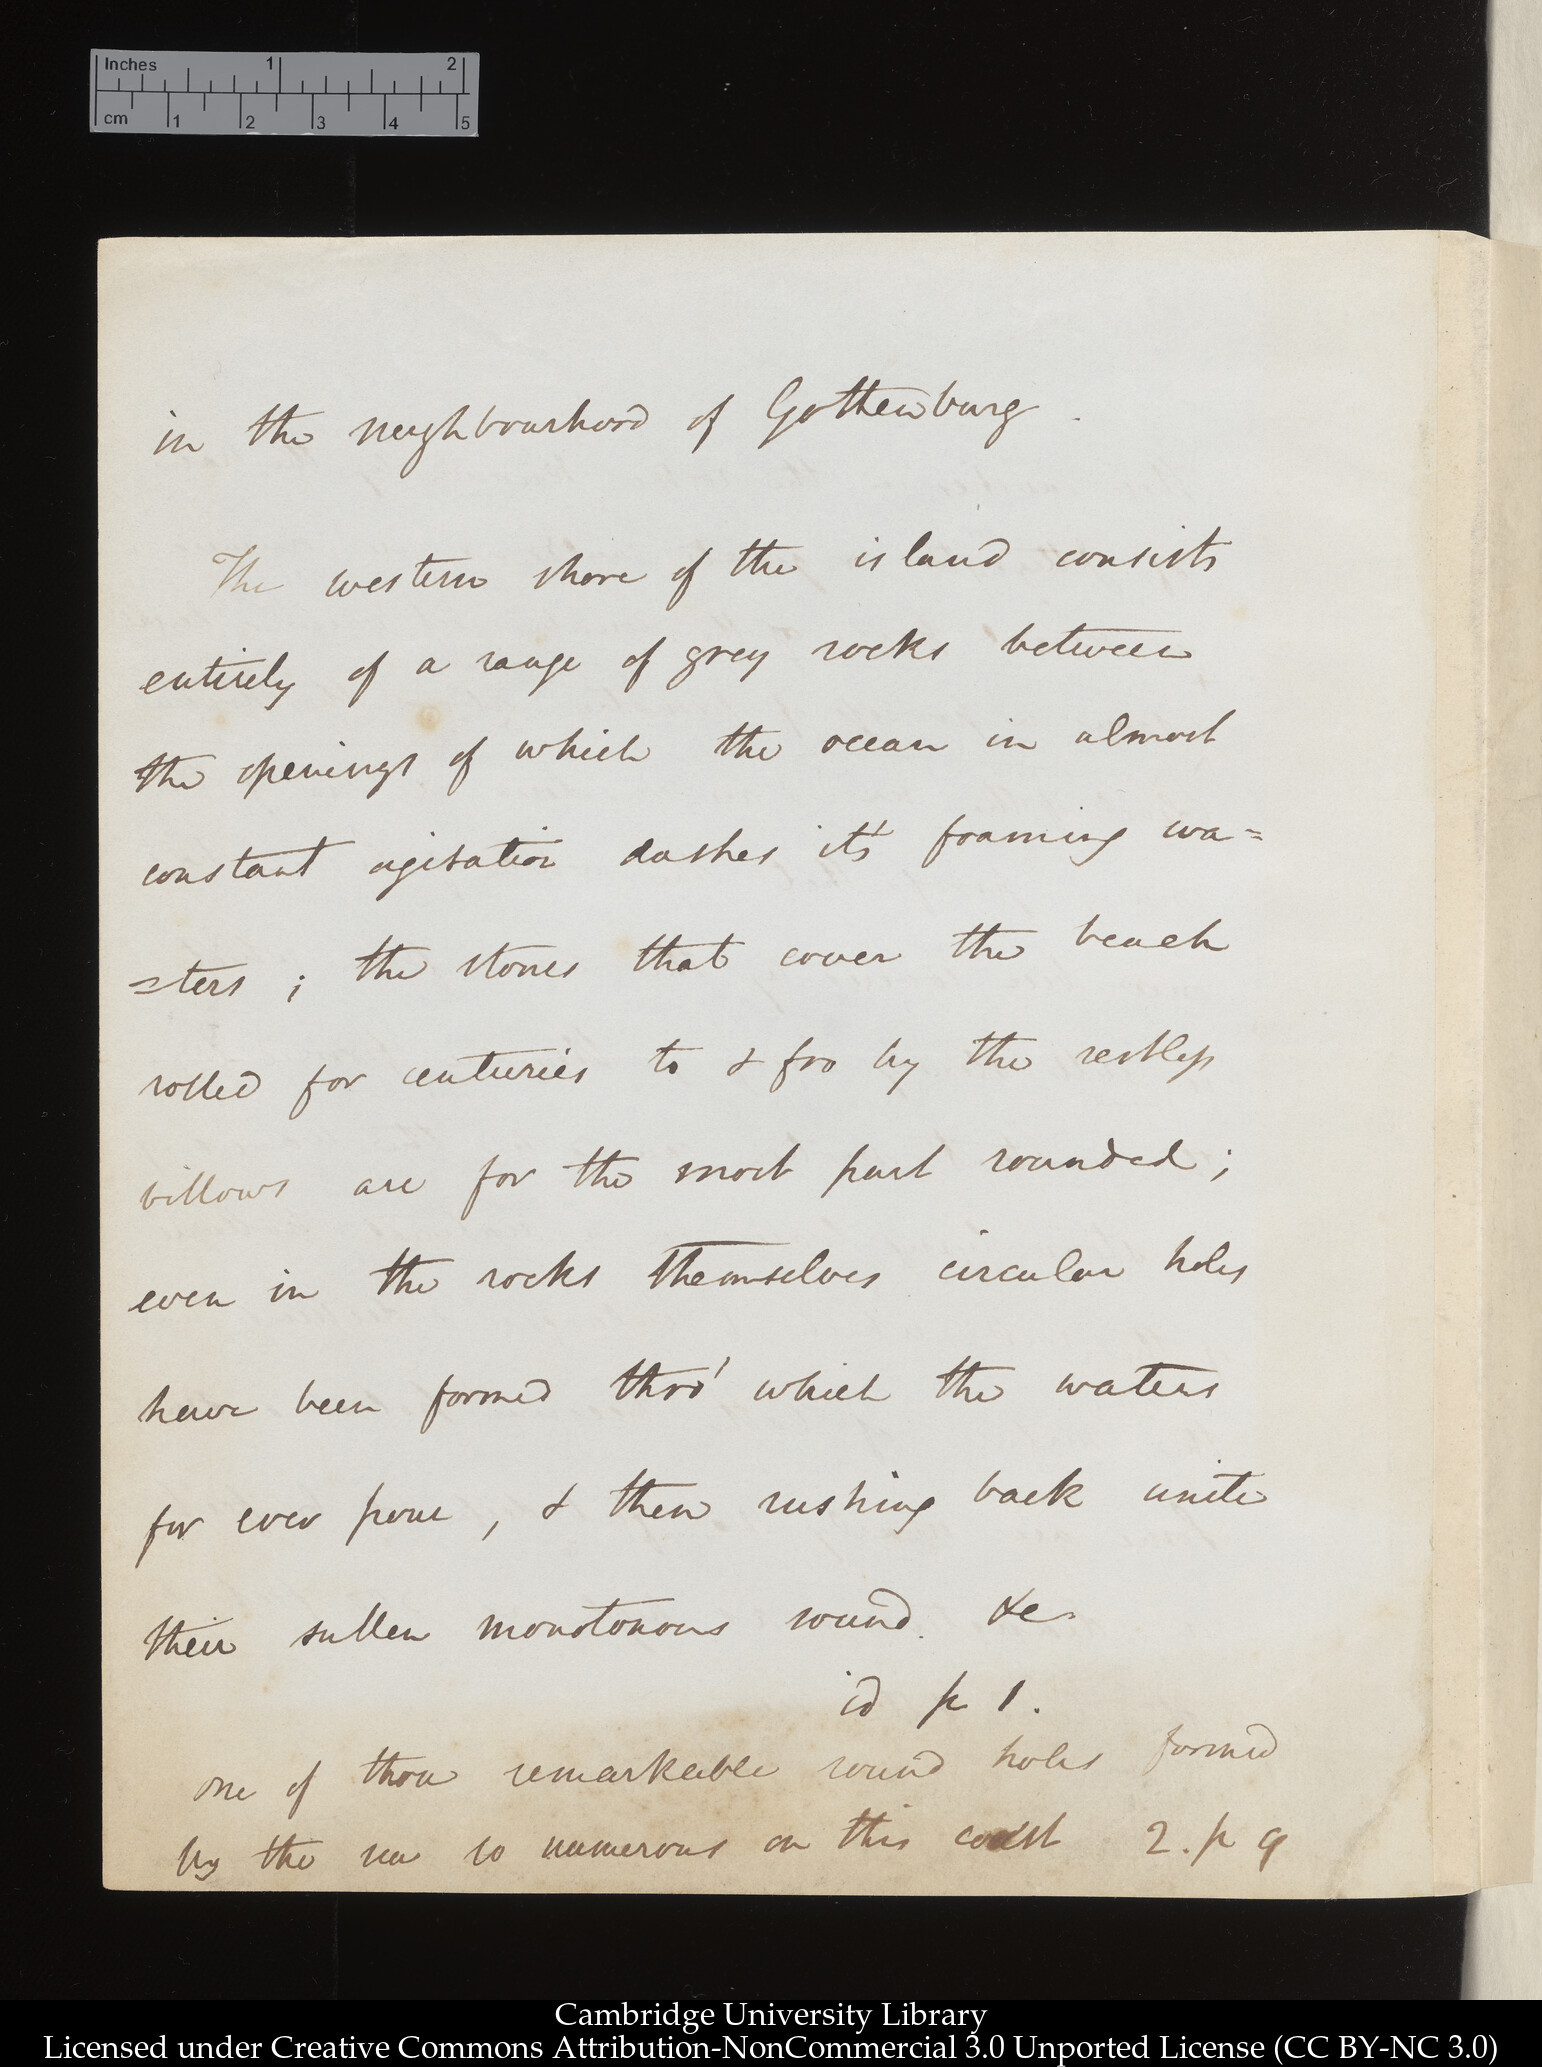 Inches 1 2
cm 1 2 3 4 5
in the neighbourhood of Gottenburg.
The western shore of the island consists
entirely of a range of grey rocks between
the openings of which the ocean in almost
constant agitation dashes it's foaming wa=
=ters ; the stones that cover the beach
rolled for centuries to & fro by the restless
billows are for the most part rounded ;
even in the rocks themselves circular holes
have been formed thro' which the waters
for ever pour , & then rushing back unite
their sullen monotonous sound. &c.
id p 1.
one of those remarkable round holes formed
by the sea so numerous on this coast 2. p 9
Cambridge University Library
Licensed under Creative Commons Attribution-NonCommercial 3.0 Unported License (CC BY-NC 3.0)